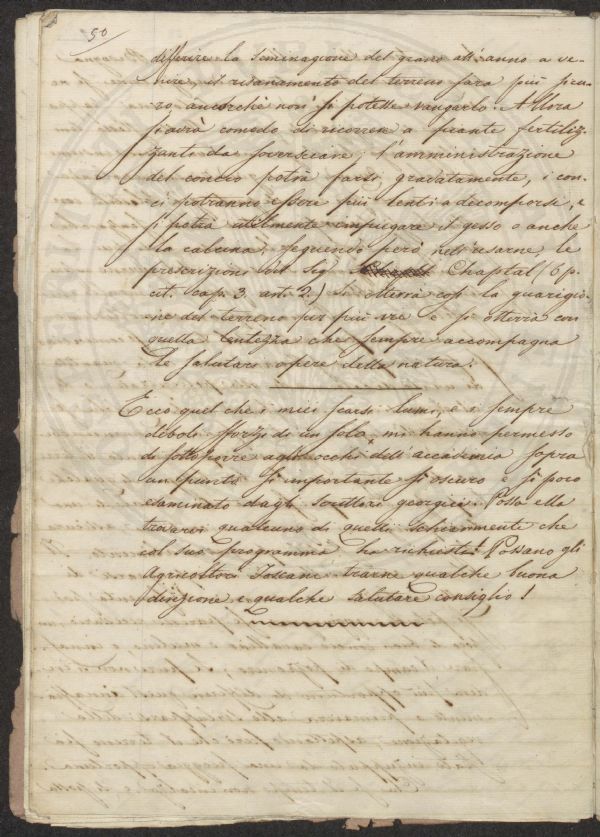 50
differire la seminagione del grano all'anno a ve-
nire il risanamento del terreno sarà più sicu-
ro ancorchè non si potesse vangarlo. Allora
si avrà comodo di ricorrere a piante fertiliz-
zanti da sovesciare; l'amministrazione
del concio potrà farsi gradatamente, i con-
ci potranno essere più lenti a decomporsi, e
si potrà utilmente impiegare il gesso o anche
la calcina, seguendo però nell'usarne, le
prescrizioni del Sig.r Chaptal (Op.
cit. cap. 3 art. 2.) Si otterrà così la guarigio-
ne del terreno per più vie e si otterrà con
quella lentezza che sempre accompagna
le salutari opere della natura.
Ecco quel che i miei scarsi lumi, e i sempre
deboli sforzi di un solo, mi hanno permesso
di sottoporre agli occhi dell'accademia sopra
un punto sì importante sì oscuro e sì poco
esaminato dagli scrittori georgici. Possa ella
trovarvi qualcuno di quelli schiarimenti che
col suo programma ha richiesti! Possano gli
Agricoltori Toscani trarne qualche buona
direzione e qualche salutare consiglio!